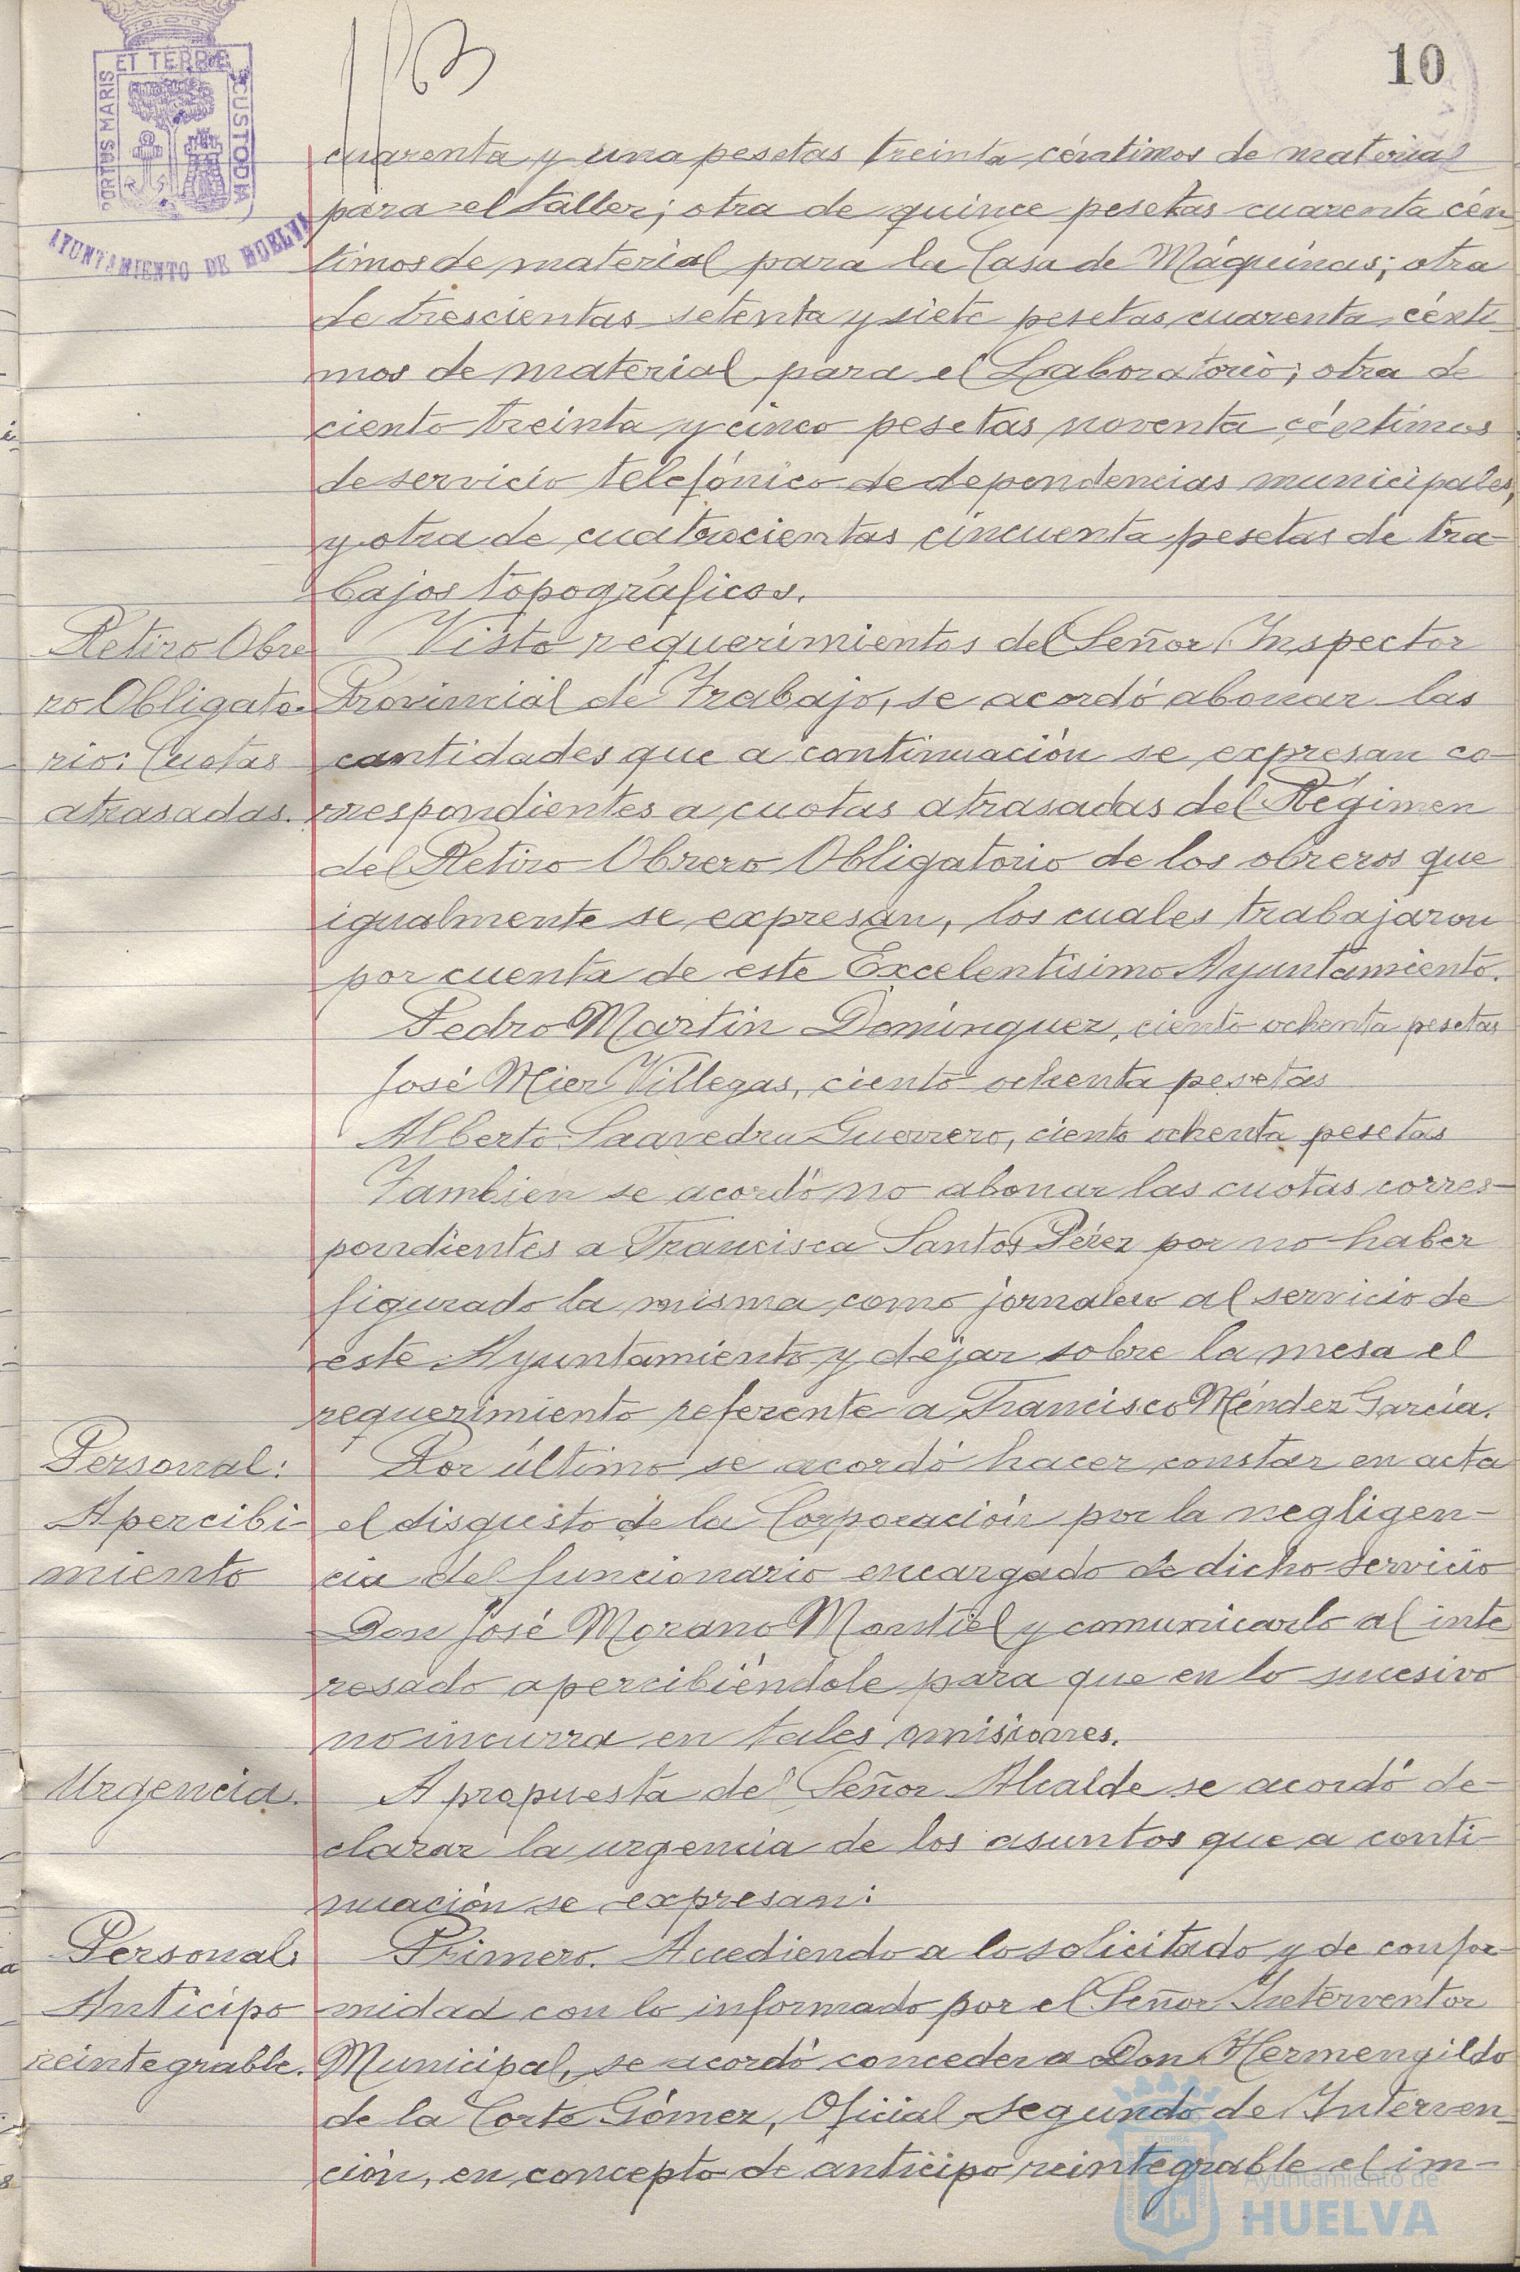 10
PORTUS MARIS ET TERRÆ CUSTODIA
AYUNTAMIENTO DE HUELVA
cuarenta y una pesetas treinta céntimos de material
para el taller; otra de quince pesetas cuarenta cén-
timos de material para la Casa de Máquinas; otra
de trescientas setenta y siete pesetas cuarenta cénti-
mos de material para el Laboratorio; otra de
ciento treinta y cinco pesetas noventa céntimos
de servicio telefónico de dependencias municipales,
y otra de cuatrocientas cincuenta pesetas de tra-
bajos topográficos.
Retiro Obre
ro Obligato-
rio: Cuotas
atrasadas.
Visto requerimientos del Señor Inspector
Provincial de Trabajo, se acordó abonar las
cantidades que a continuación se expresan co-
rrespondientes a cuotas atrasadas del Régimen
del Retiro Obrero Obligatorio de los obreros que
igualmente se expresan, los cuales trabajaron
por cuenta de este Excelentisimo Ayuntamiento.
Pedro Martín Domínguez, ciento ochenta pesetas
José Mier Villegas, ciento ochenta pesetas
Alberto Saavedra Guerrero, ciento ochenta pesetas
Tambien se acordó no abonar las cuotas corres-
pondientes a Francisca Santos Pérez por no haber
figurado la misma como jornalero al servicio de
este Ayuntamiento y dejar sobre la mesa el
requerimiento referente a Francisco Méndez García.
Personal:
Apercibi-
miento
Por último se acordó hacer constar en acta
el disgusto de la Corporación por la negligen-
cia del funcionario encargado de dicho servicio
Don José Morano Montiel y comunicarlo al inte-
resado apercibiéndole para que en lo sucesivo
no incurra en tales omisiones.
Urgencia.
A propuesta del Señor Alcalde se acordó de-
clarar la urgencia de los asuntos que a conti-
nuación se expresan:
Personal:
Anticipo
reintegrable.
Primero. Accediendo a lo solicitado y de confor-
midad con lo informado por el Señor Interventor
Municipal, se acordó conceder a Don Hermengildo
de la Corte Gómez, Oficial segundo de Interven-
ción, en concepto de anticipo reintegrable el im-
Ayuntamiento de
HUELVA